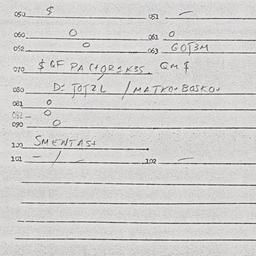 050 $ 051 —
060 0 061 0
062 0 063 GOT3M
070 $ GF PA QM $
080 D: TOTZL / MATKO+ BOSKO+
081 0
082 0
090 0
100 SMENTAS+
101 — / — 102 —